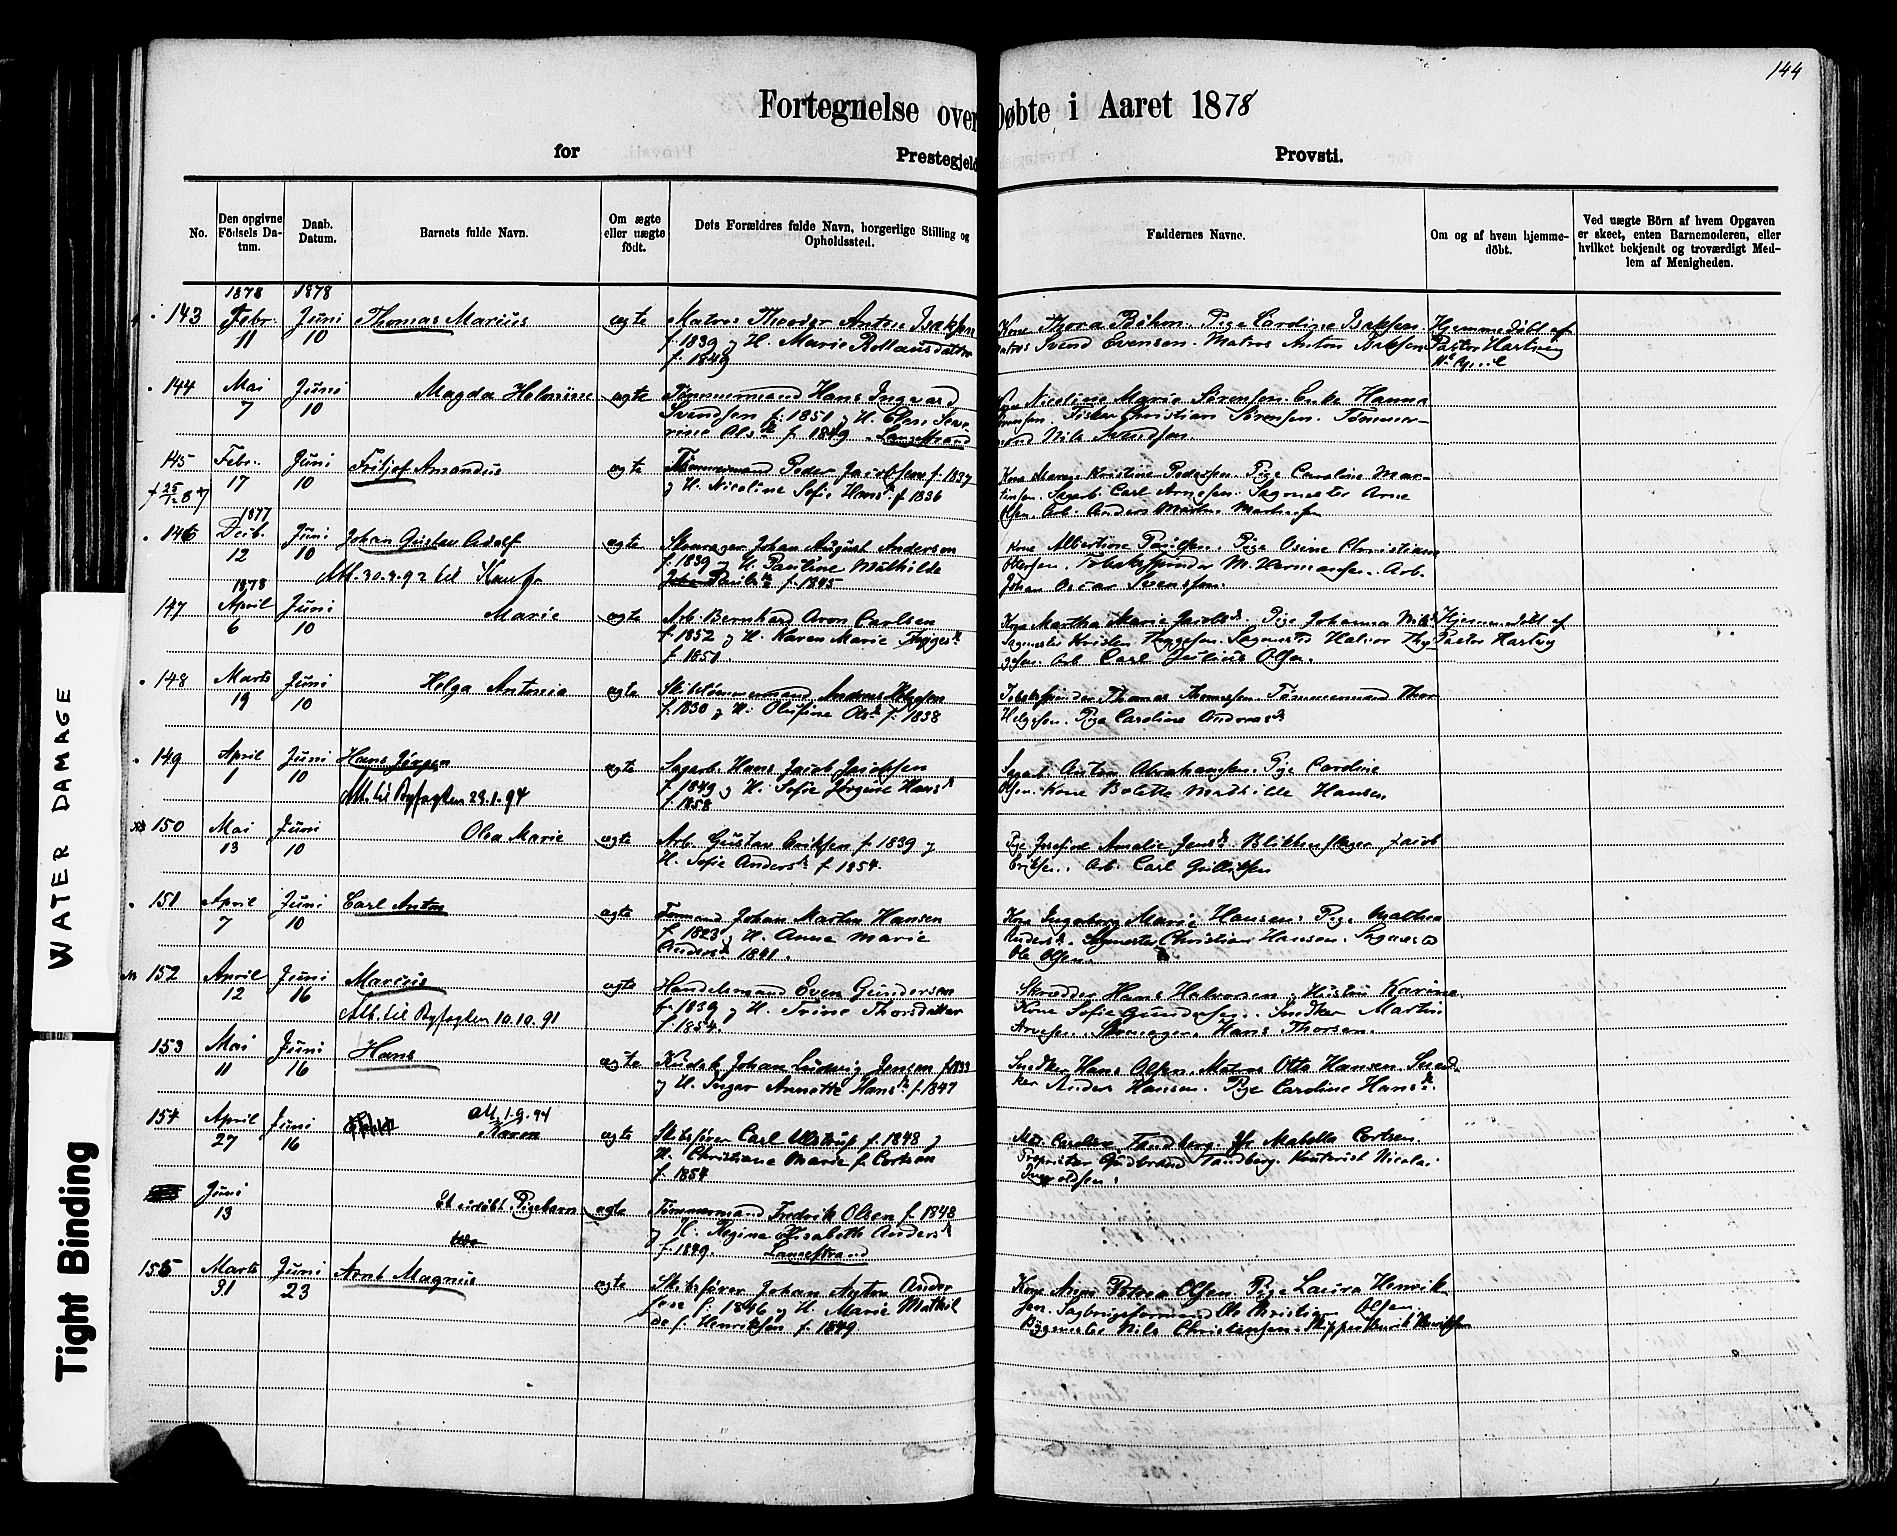 144
Fortegnelse over Døbte i Aaret 1878
for Prestegjeld Provsti.
No.
Den opgivne Födsels Datum.
Daab. Datum.
Barnets fulde Navn.
Om ægte eller uægte födt.
Dets Forældres fulde Navn, borgerlige Stilling og Opholdssted.
Faddernes Navne.
Om og af hvem hjemmedöbt.
Ved uægte Börn af hvem Opgaven er skeet, enten Barnemoderen, eller hvilket bekjendt og troværdigt Medlem af Menigheden.
1878 1878
143 Febr. 11 Juni 10 Thomas Marius ægte Matros Theodor Anton Isaksen
f. 1839 og H. Marie Rollausdatter
f. 1849
Kone Thora Böhm. Pige Caroline Isaksen
Matros Svend Evensen. Matros Anton Isaksen
Hjemmedöbt af
Pastor Hartvig
144 Mai 7 Juni 10 Magda Helmine ægte Tömmermand Hans Ingvard
Svendsen f. 1851 og H. Elen Severine Olsd. f. 1849 Langestrand
Nicoline Marie Sörensen. Enke Hanna
Fisker Christian Sörensen. Tömmermand Nils Svendsen.
145 Febr. 17 Juni 10 Fritjof Amandus ægte Tömmermand Peder Jacobsen f. 1837
og H. Nicoline Sofie Hansd. f. 1836
Kone Maren Kristine Pedersen. Pige Caroline Martinsen. Sagarb. Carl Arnesen. Sagmester Arne
Olsen. Arb. Anders Martin Mathisen
1877
146 Decb. 12 Juni 10 Johan Gustav Adolf ægte Skomager Johan August Anderson
f. 1839 og H. Pauline Mathilde
f. 1845
Att. 30.9.92 til
Kone Albertine Paulsen. Pige Osine Christiane
Ottersen. Tobaksspinder M. Hermansen. Arb.
Johan Oscar Svensson.
1878
147 April 6 Juni 10 Marie ægte Arb. Bernhard Aron Carlsen
f. 1852 og H. Karen Marie Tryggesd.
f. 1851.
Kone Martha Marie Jacobsd. Pige Johanna
Sagmester Kristen Tryggesen. Sagmester Halvor Tryggesen. Arb. Carl Julius Olsen.
Hjemmedöbt af
Pastor Hartvig
148 Marts 19 Juni 10 Helga Antonia ægte Skibstömmermand Andreas Helgesen
f. 1830 og H. Olufine Olsd. f. 1838
Tobaksspinder Thomas Thomessen. Tömmermand Thor
Helgesen. Pige Caroline Andreasd.
149 April 1 Juni 10 Hans Jörgen ægte Sagarb. Hans Jacob Jacobsen
f. 1849 og H. Sofie Jörgine Hansd.
f. 1858
Att. til Byfogden 29.1.94
Sagarb. Anton Abrahamsen. Pige Caroline
Olsen. Kone Bolette Mathilde Hansen
150 Mai 13 Juni 10 Olea Marie ægte Arb. Gustav Eriksen f. 1839 og
H. Sofie Andersd. f. 1854.
Pige Josefine Amalie Jensd. Blikkenslager Jacob
Eriksen. Arb. Carl Gulliksen
151 April 7 Juni 10 Carl Anton ægte Formand Johan Martin Hansen
f. 1823 og H. Anne Marie
Andersd. 1841.
Kone Ingeborg Marie Hansen. Pige Mathea
Andersd. Sagmester Christian Hansen. Sagmester
Ole Olsen.
152 April 12 Juni 16 Marius ægte Handelsmand Even Gundersen
f. 1839 og H. Trine Thorsdatter
f. 1854.
Att. til Byfogden 10.10.91
Skrædder Hans Halvorsen. Hustru Karine
Kone Sofie Gundersen. Snedker Martin
Arnesen. Skomager Hans Thorsen.
153 Mai 11 Juni 16 Hans ægte Kudsk Johan Ludvig Jensen f. 1833
og H. Inger Annette Hansd. f. 1847
Snedker Hans Olsen. Matros Otto Hansen. Snedker Anders Hansen. Pige Caroline Hansd.
154 April 27 Juni 16 Att. 1.9.94
Karen ægte Skibsförer Carl Ulstrup f. 1848 og
H. Christiane Marie f. Cortsen
f. 1854
Mad. Caroline Tandberg. Mabella Cortsen.
Proprietær Gudbrand Tandberg. Kontorist Nicolai
Ingvoldsen.
Juni 13 Et udöbt Pigebarn ægte Tömmermand Fredrik Olsen f. 1848
og H. Regine Elisabeth Andersd.
f. 1849. Langestrand
155 Marts 31 Juni 23 Arnt Magnus ægte Skibsförer Johan Anton Andersen f. 1846 og H. Marie Mathilde f. Henriksen f. 1849.
Kone Anne Petrea Olsen. Pige Laura Henriksen. Sagbrugsformand Ole Christian Olsen.
Bygmester Nils Christensen. Skipper Henrik Henriksen
WATER DAMAGE
Tight Binding